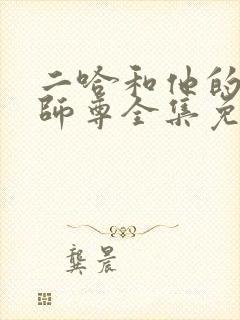 二哈和他的
师尊全集免
龚晨